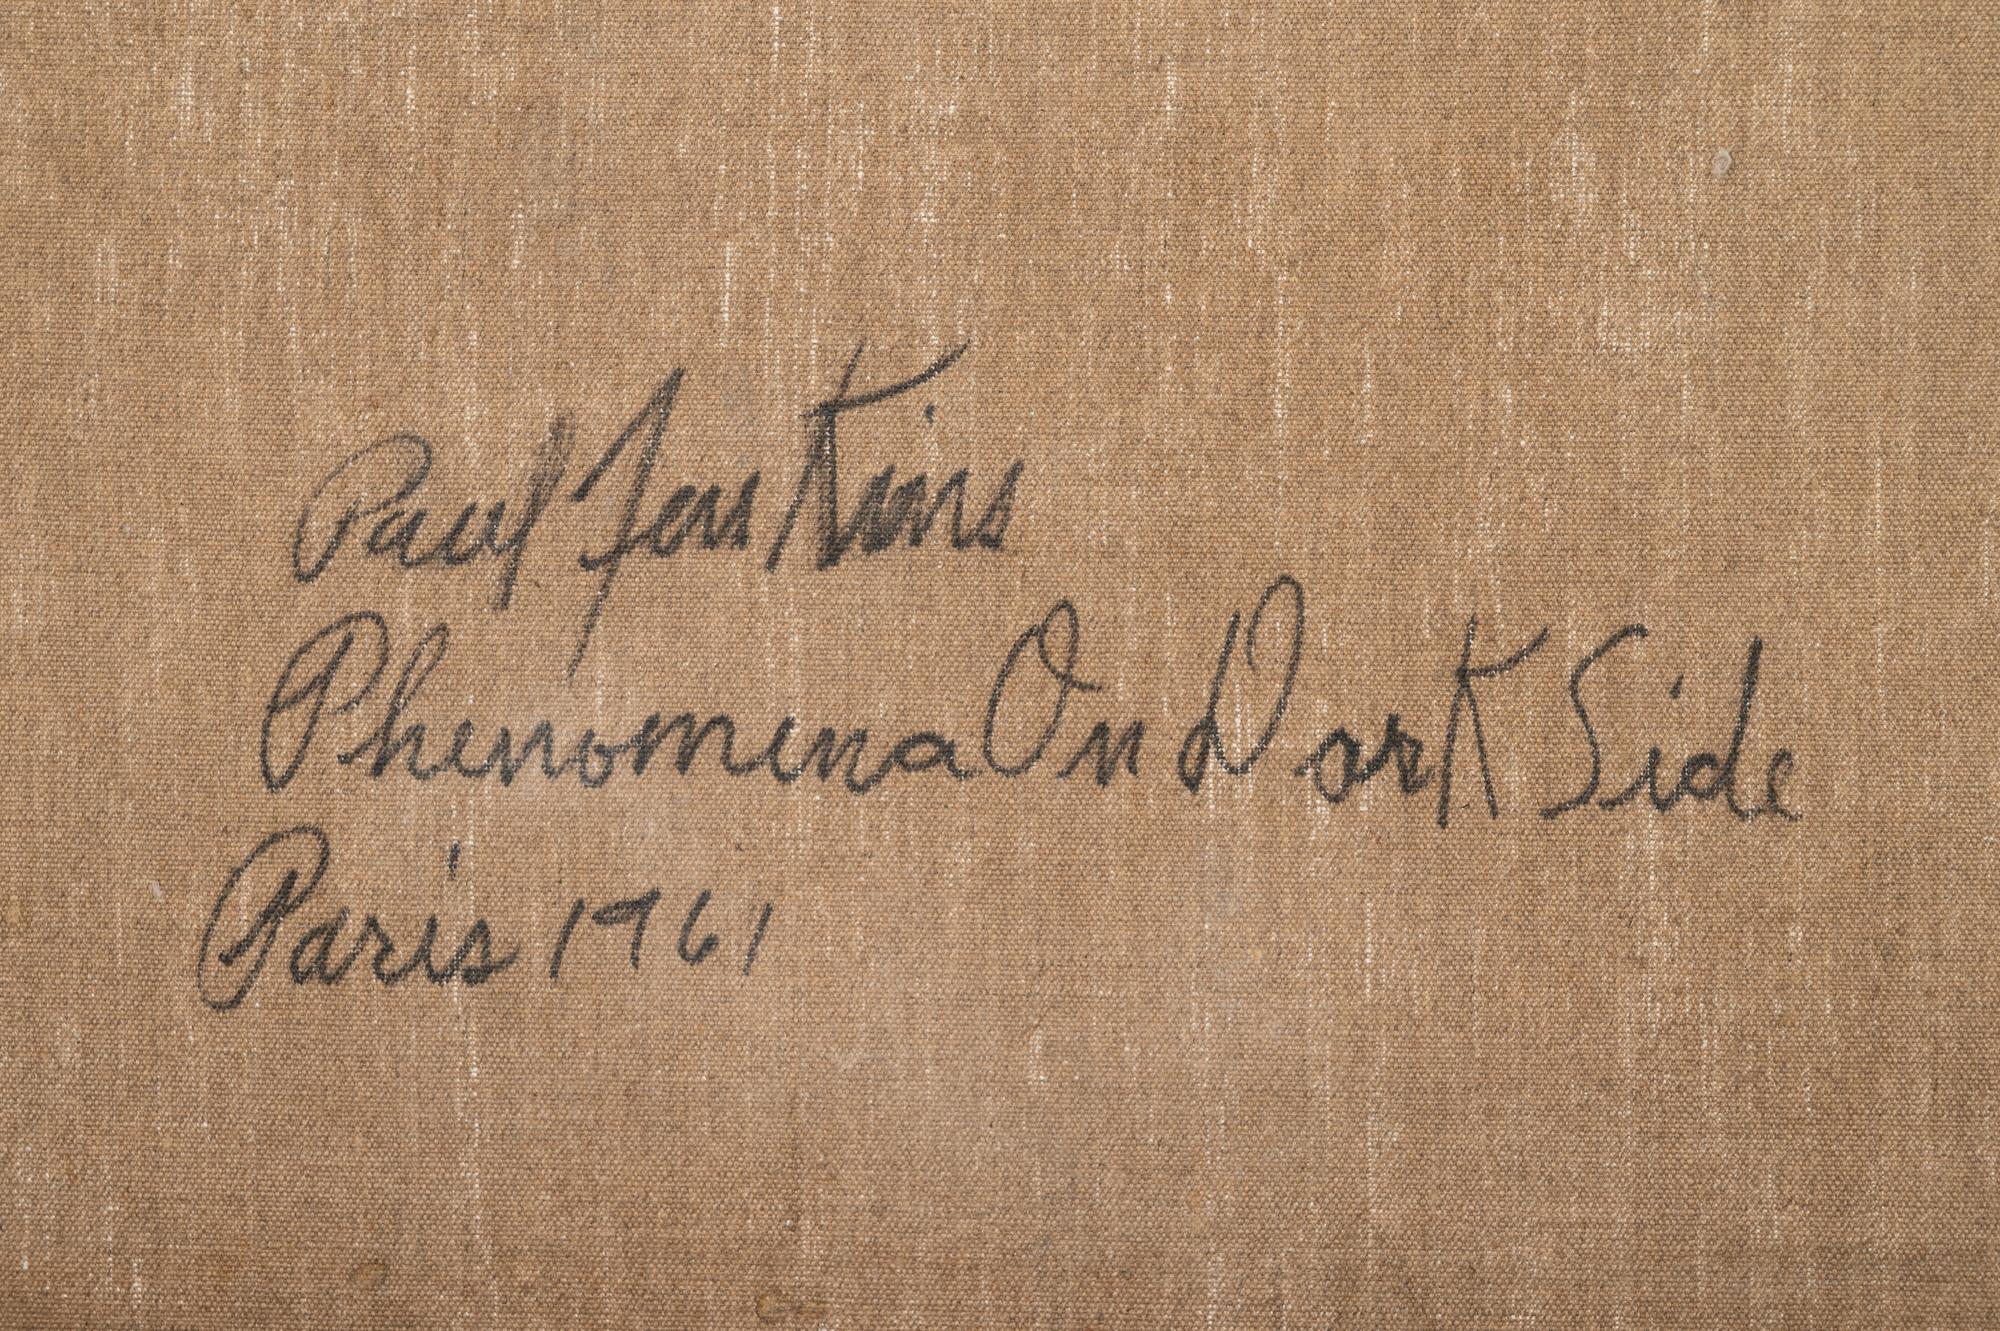 Paul Jenkins
Phenomena On Dark Side
Paris 1961